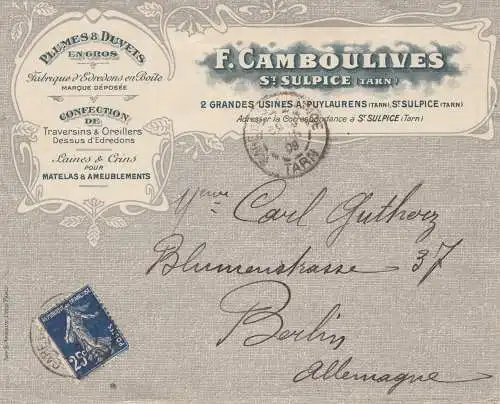 PLUMES & DUVETS
EN GROS
Fabrique d'Edredons en Boîte
MARQUE DÉPOSÉE
CONFECTION
DE
Traversins & Oreillers
Dessus d'Edredons
Laines & Crins
POUR
MATELAS & AMEUBLEMENTS
F. CAMBOULIVES
ST SULPICE (TARN)
2 GRANDES USINES A PUYLAURENS (TARN), ST SULPICE (TARN)
Adresser la Correspondance à ST SULPICE (Tarn)
TARN
09
Carl Gutherz
Blumenstrasse 37
Berlin
Allemagne
REPUBLIQUE FRANÇAISE
POSTES
25c